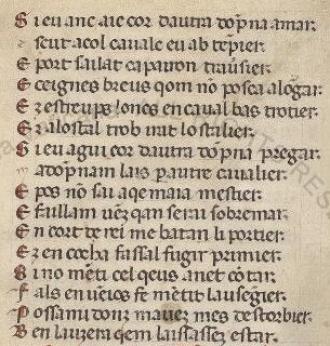 S ieu anc aic cor dautra dõpna amar.
escut acol cavalc eu ab tẽpier.
E port sallat capairon trauſier.
E ceignes breus qom nõ posca alõgar.
E ⁊ estreups loncs en caval bas trotier.
E ⁊ alostal trob irat lo stalier.
S ieu agui cor dautra dõpna pregar.
m adõpnam lais p autre cavalier.
E pos nõ sai aqe maia mestier.
E faillam vẽz qan serai sobremar.
E n cort de rei me batan li portier.
E ⁊ en cocha fassal fugir primier.
S i no mẽti cel qeus anet cõtar.
F als enveios fe mẽtit lausẽgier.
P ossam donz mavez mes destorbier.
B en lauzera qem laissassez estar.